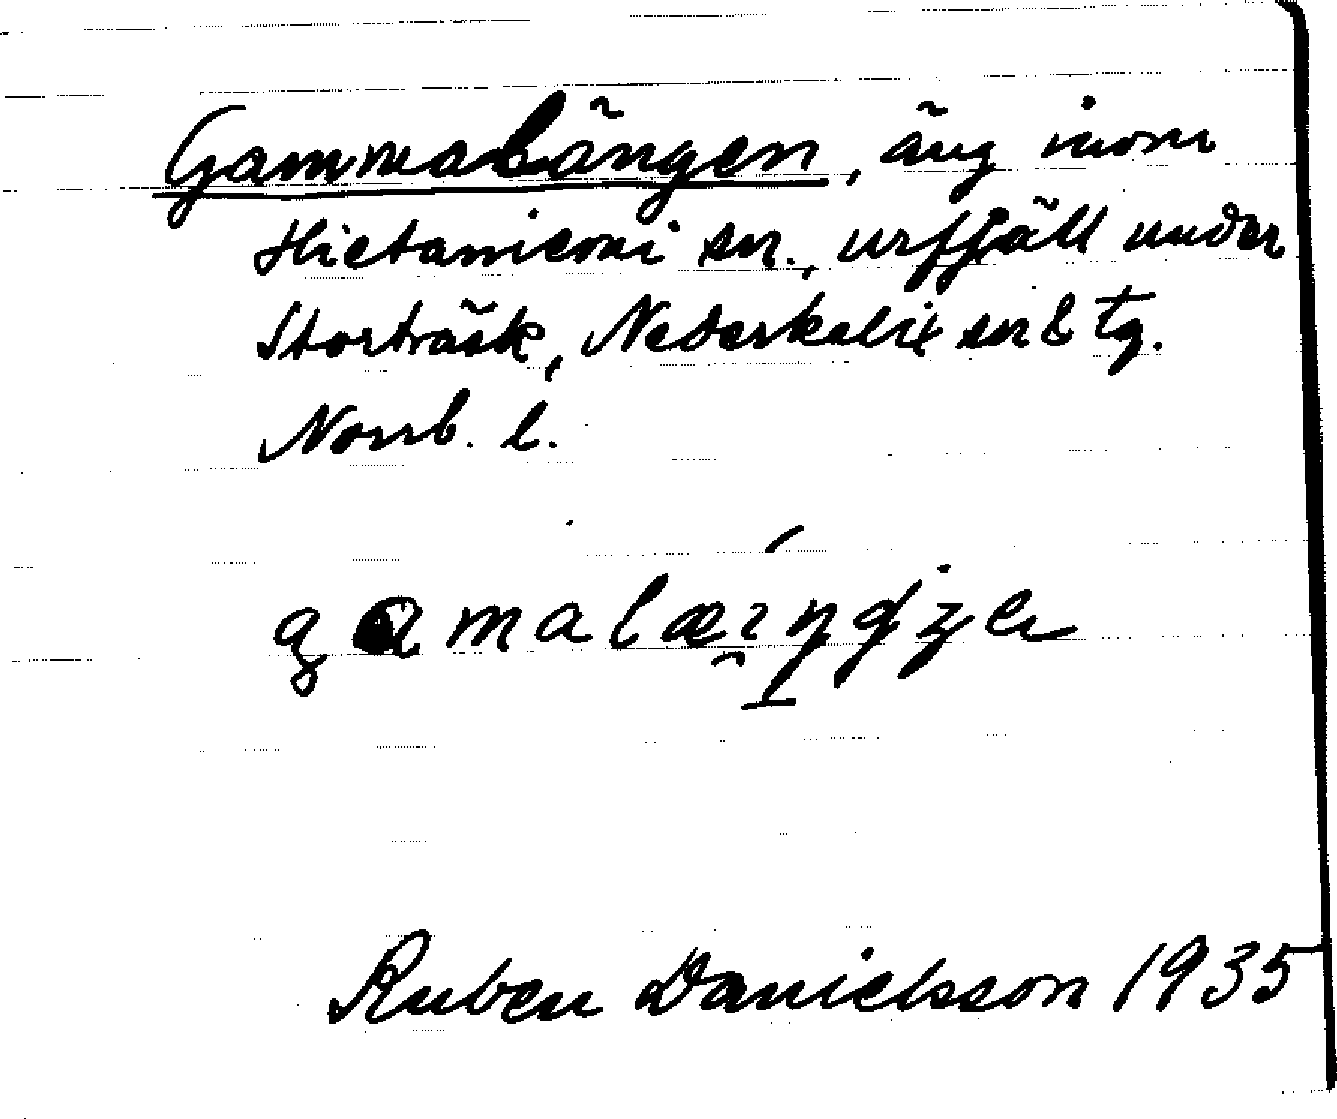 Gammalängen, äng inom
Hietaniemi sn., urfjäll under
Storträsk, Nederkalix sn & tg.
Norrb. l.
Ruben Danielsson 1935